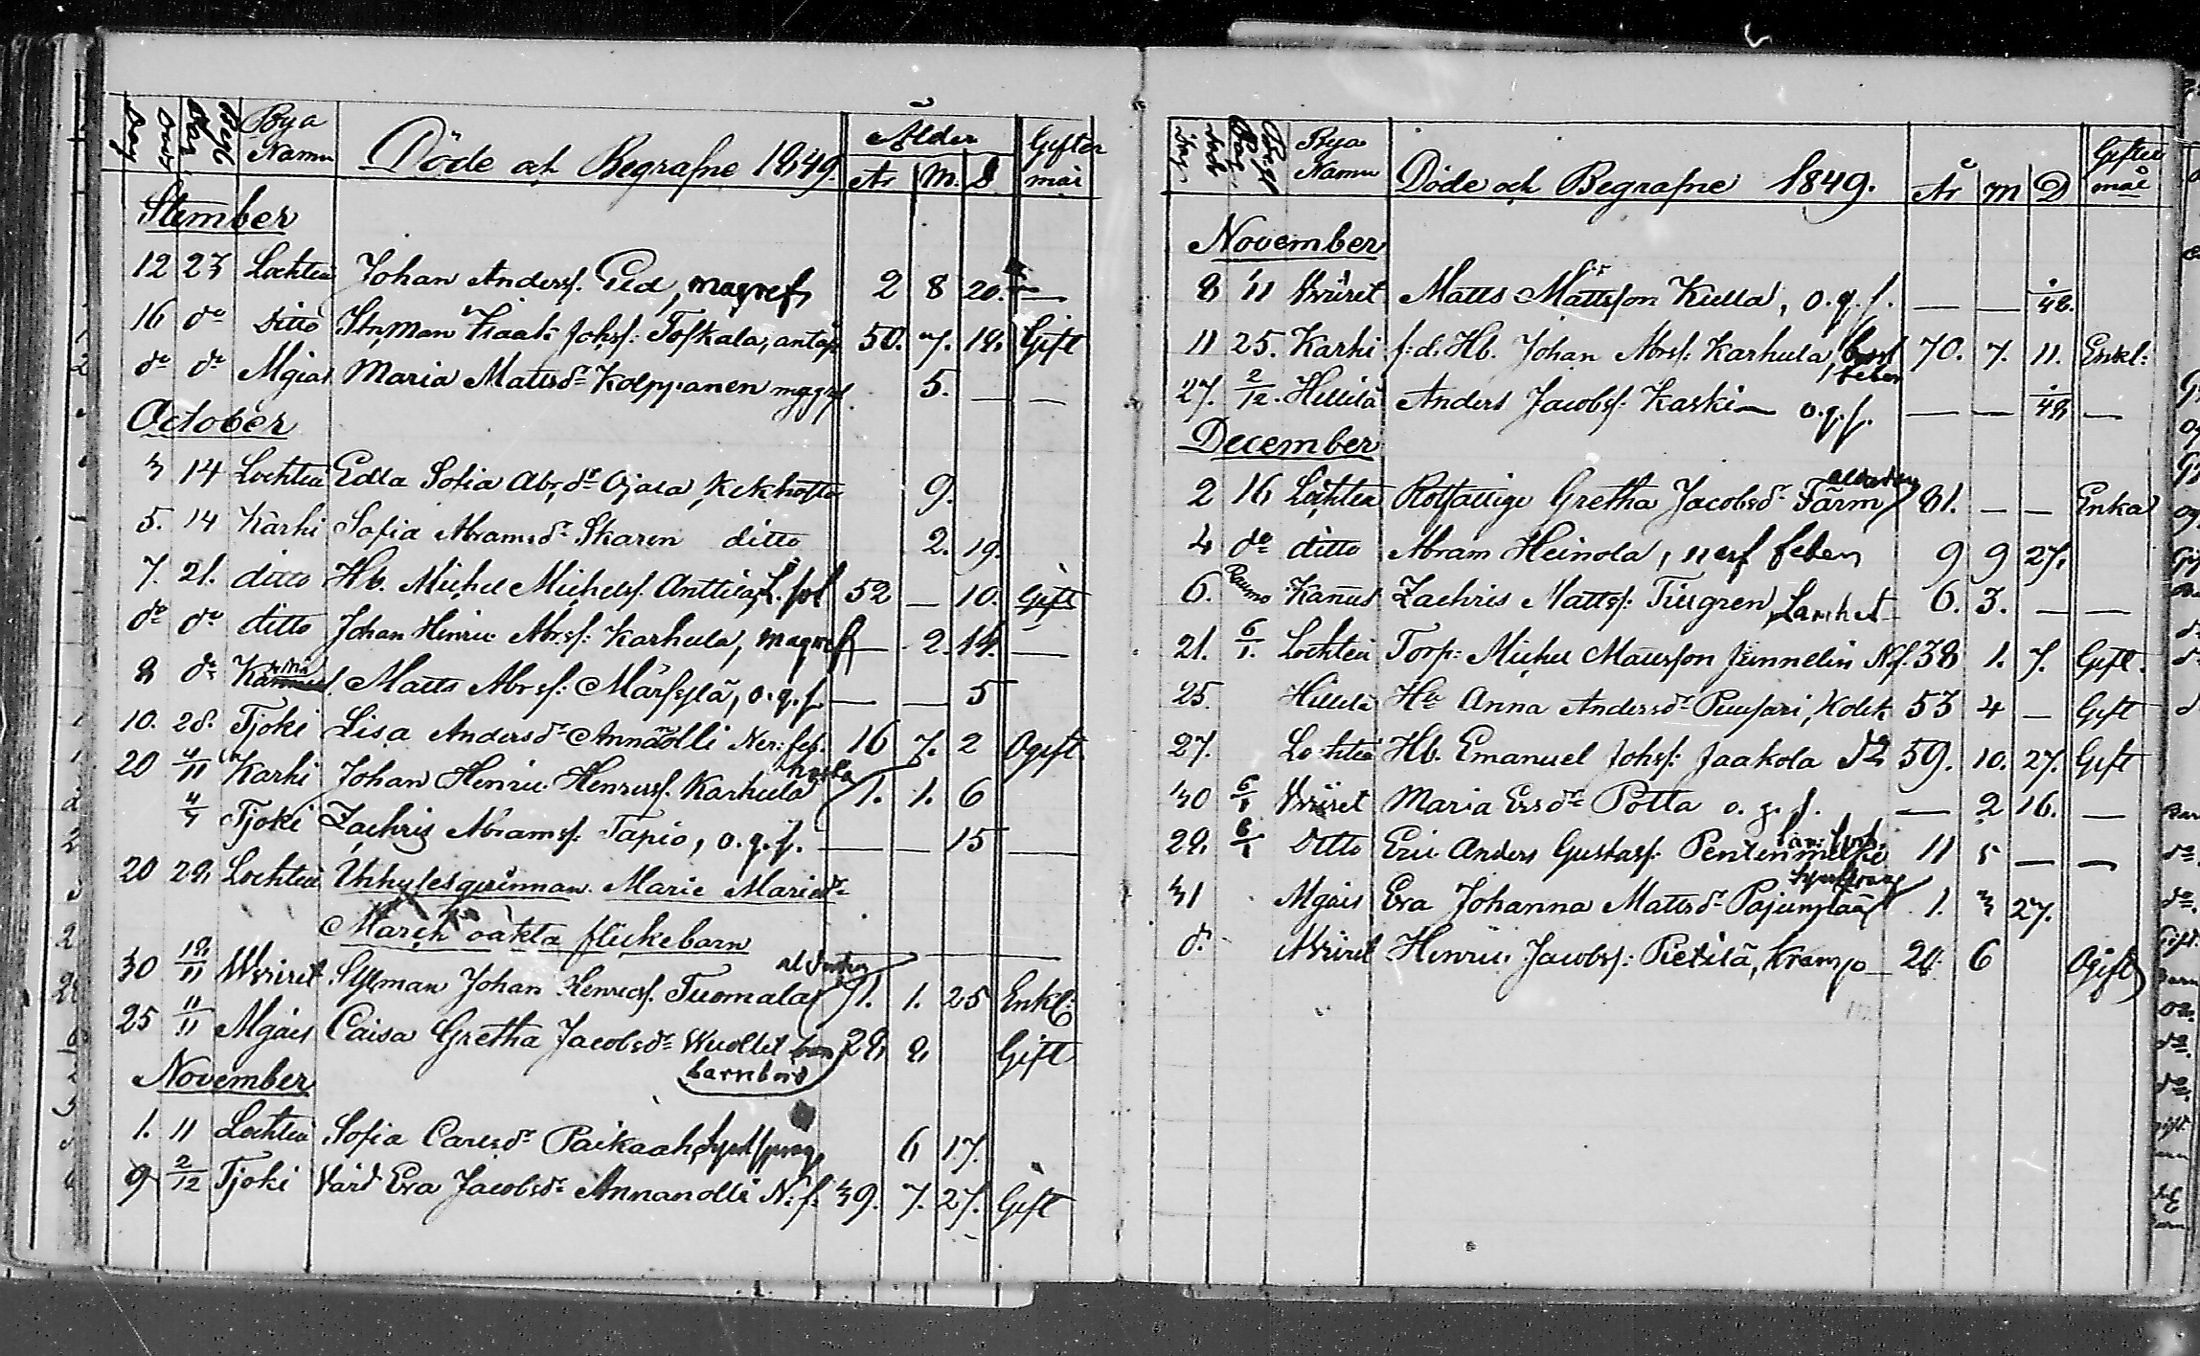 Bya Namn Döde och Begrafne 1849 Ålder År M. D Giftermål
Stember
12 23 Lochteå Johan Andersf. Ped, magref
16 do ditto Isaak Johsf. Toskala, 50. 7. 18. Gift
2 8 20.
do do Mgiäs Maria Mattsdr Kolppanen 5. — —
October
3 14 Lochteå Edla Sofia Abr,dr Ojala, Kikhosta 9.
5. 14 Kärki Sofia Abramsdr Skaren ditto 2. 19.
7. 21. ditto Hb. Michel Michelsf. Anttila, 52 — 10. Gift
do do ditto Johan Henric Abrsf: Karhula, magref — 2. 14. —
8 do Matts Abrsf: Märsylä, o.g.f. — — 5
10. 28. Tjoki Lisa Andersdr Annaolli Ner: feb. 16 7. 2 Ogift.
20 4/11 Karhi Johan Henric Henricsf. Karhula hosta 1. 1. 6
Tjoki Zachris Abramsf. Tapio, o.g.f. — — 15 —
20 28 Lochteå Inhyses qvinnan Marie
March oäkta flickebarn — — —
30 18/11 Wvirret Johan Henricsf. Tuomala 91. 1. 25 Enkl:
25 11/11 Mgäis Caisa Gretha Jacobsdr Wuollet barnbörd 28, 8 Gift
November
1. 11 Lochteå Sofia Carlsdr 6 17.
9 2/12 Tjoki Eva Jacobsdr Annanolli N: f: 39. 7. 27. Gift
Bya Namn Döde och Begrafne 1849. År M D Giftermål
November
8 11 Wviret Matts Mattsson Kulla, o.g.f. — — 1/48.
11 25. Karhi f:d. Hb. Johan Abrsf: Karhula, bröst feber 70. 7. 11. Enkl:
27. 2/12. Hillilä Anders Jacobsf: Kaski — o.g.f. — — 1/48 —
December
2 16 Lochteå Rotfattige Gretha Jacobsdr Färm 81. — — Enka
4 do ditto Abram Heinola, nerf feber 9 9 27.
6. Kanus Zachris Mattsf: Tiugren, Lamhet 6. 3. — —
21. 6/1. Lochteå Torp: Michel Mattsson Junnelin Nf. 38 1. 7. Gift.
25. Hillilä Anna Andersdr Puusari, Kolik 53 4 — Gift
27. Lochteå Hb. Emanuel Johsf: Jaakola do 59. 10. 27. Gift
30 6/1 Wviret Maria Ersdr Potta o.g.f. — 2 16. —
28. 6/1 Ditto Eric Anders Gustafsf: 11 5 — —
31 Mgäis Eva Johanna Mattsdr 1. 3 27.
d. Wviret Henric Jacobsf: Pietilä, Kramp 28. 6 Ogift